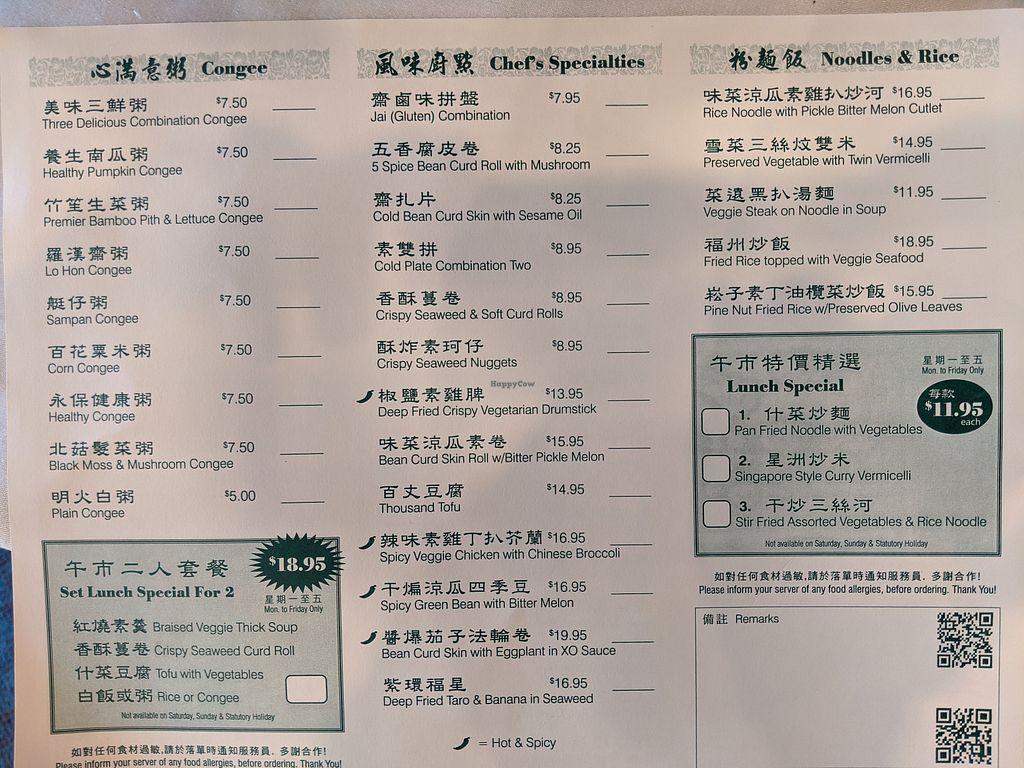 心滿意粥 Congee
美味三鮮粥 $7.50
Three Delicious Combination Congee
養生南瓜粥 $7.50
Healthy Pumpkin Congee
竹笙生菜粥 $7.50
Premier Bamboo Pith & Lettuce Congee
羅漢齋粥 $7.50
Lo Hon Congee
艇仔粥 $7.50
Sampan Congee
百花粟米粥 $7.50
Corn Congee
永保健康粥 $7.50
Healthy Congee
北菇髮菜粥 $7.50
Black Moss & Mushroom Congee
明火白粥 $5.00
Plain Congee
午市二人套餐 $18.95
Set Lunch Special For 2
星期一至五
Mon. to Friday Only
紅燒素羹 Braised Veggie Thick Soup
香酥蔓卷 Crispy Seaweed Curd Roll
什菜豆腐 Tofu with Vegetables
白飯或粥 Rice or Congee
Not available on Saturday, Sunday & Statutory Holiday
如對任何食材過敏,請於落單時通知服務員. 多謝合作!
Please inform your server of any food allergies, before ordering. Thank You!
風味廚點 Chef's Specialties
齋鹵味拼盤 $7.95
Jai (Gluten) Combination
五香腐皮卷 $8.25
5 Spice Bean Curd Roll with Mushroom
齋扎片 $8.25
Cold Bean Curd Skin with Sesame Oil
素雙拼 $8.95
Cold Plate Combination Two
香酥蔓卷 $8.95
Crispy Seaweed & Soft Curd Rolls
酥炸素珂仔 $8.95
Crispy Seaweed Nuggets
HappyCow
椒鹽素雞脾 $13.95
Deep Fried Crispy Vegetarian Drumstick
味菜涼瓜素卷 $15.95
Bean Curd Skin Roll w/Bitter Pickle Melon
百丈豆腐 $14.95
Thousand Tofu
辣味素雞丁扒芥蘭 $16.95
Spicy Veggie Chicken with Chinese Broccoli
干煸涼瓜四季豆 $16.95
Spicy Green Bean with Bitter Melon
醬爆茄子法輪卷 $19.95
Bean Curd Skin with Eggplant in XO Sauce
紫環福星 $16.95
Deep Fried Taro & Banana in Seaweed
= Hot & Spicy
粉麵飯 Noodles & Rice
味菜涼瓜素雞扒炒河 $16.95
Rice Noodle with Pickle Bitter Melon Cutlet
雪菜三絲炆雙米 $14.95
Preserved Vegetable with Twin Vermicelli
菜遠黑扒湯麵 $11.95
Veggie Steak on Noodle in Soup
福州炒飯 $18.95
Fried Rice topped with Veggie Seafood
崧子素丁油欖菜炒飯 $15.95
Pine Nut Fried Rice w/Preserved Olive Leaves
午市特價精選
Lunch Special
星期一至五
Mon. to Friday Only
每款
$11.95
each
1. 什菜炒麵
Pan Fried Noodle with Vegetables
2. 星洲炒米
Singapore Style Curry Vermicelli
3. 干炒三絲河
Stir Fried Assorted Vegetables & Rice Noodle
Not available on Saturday, Sunday & Statutory Holiday
如對任何食材過敏,請於落單時通知服務員. 多謝合作!
Please inform your server of any food allergies, before ordering. Thank You!
備註 Remarks